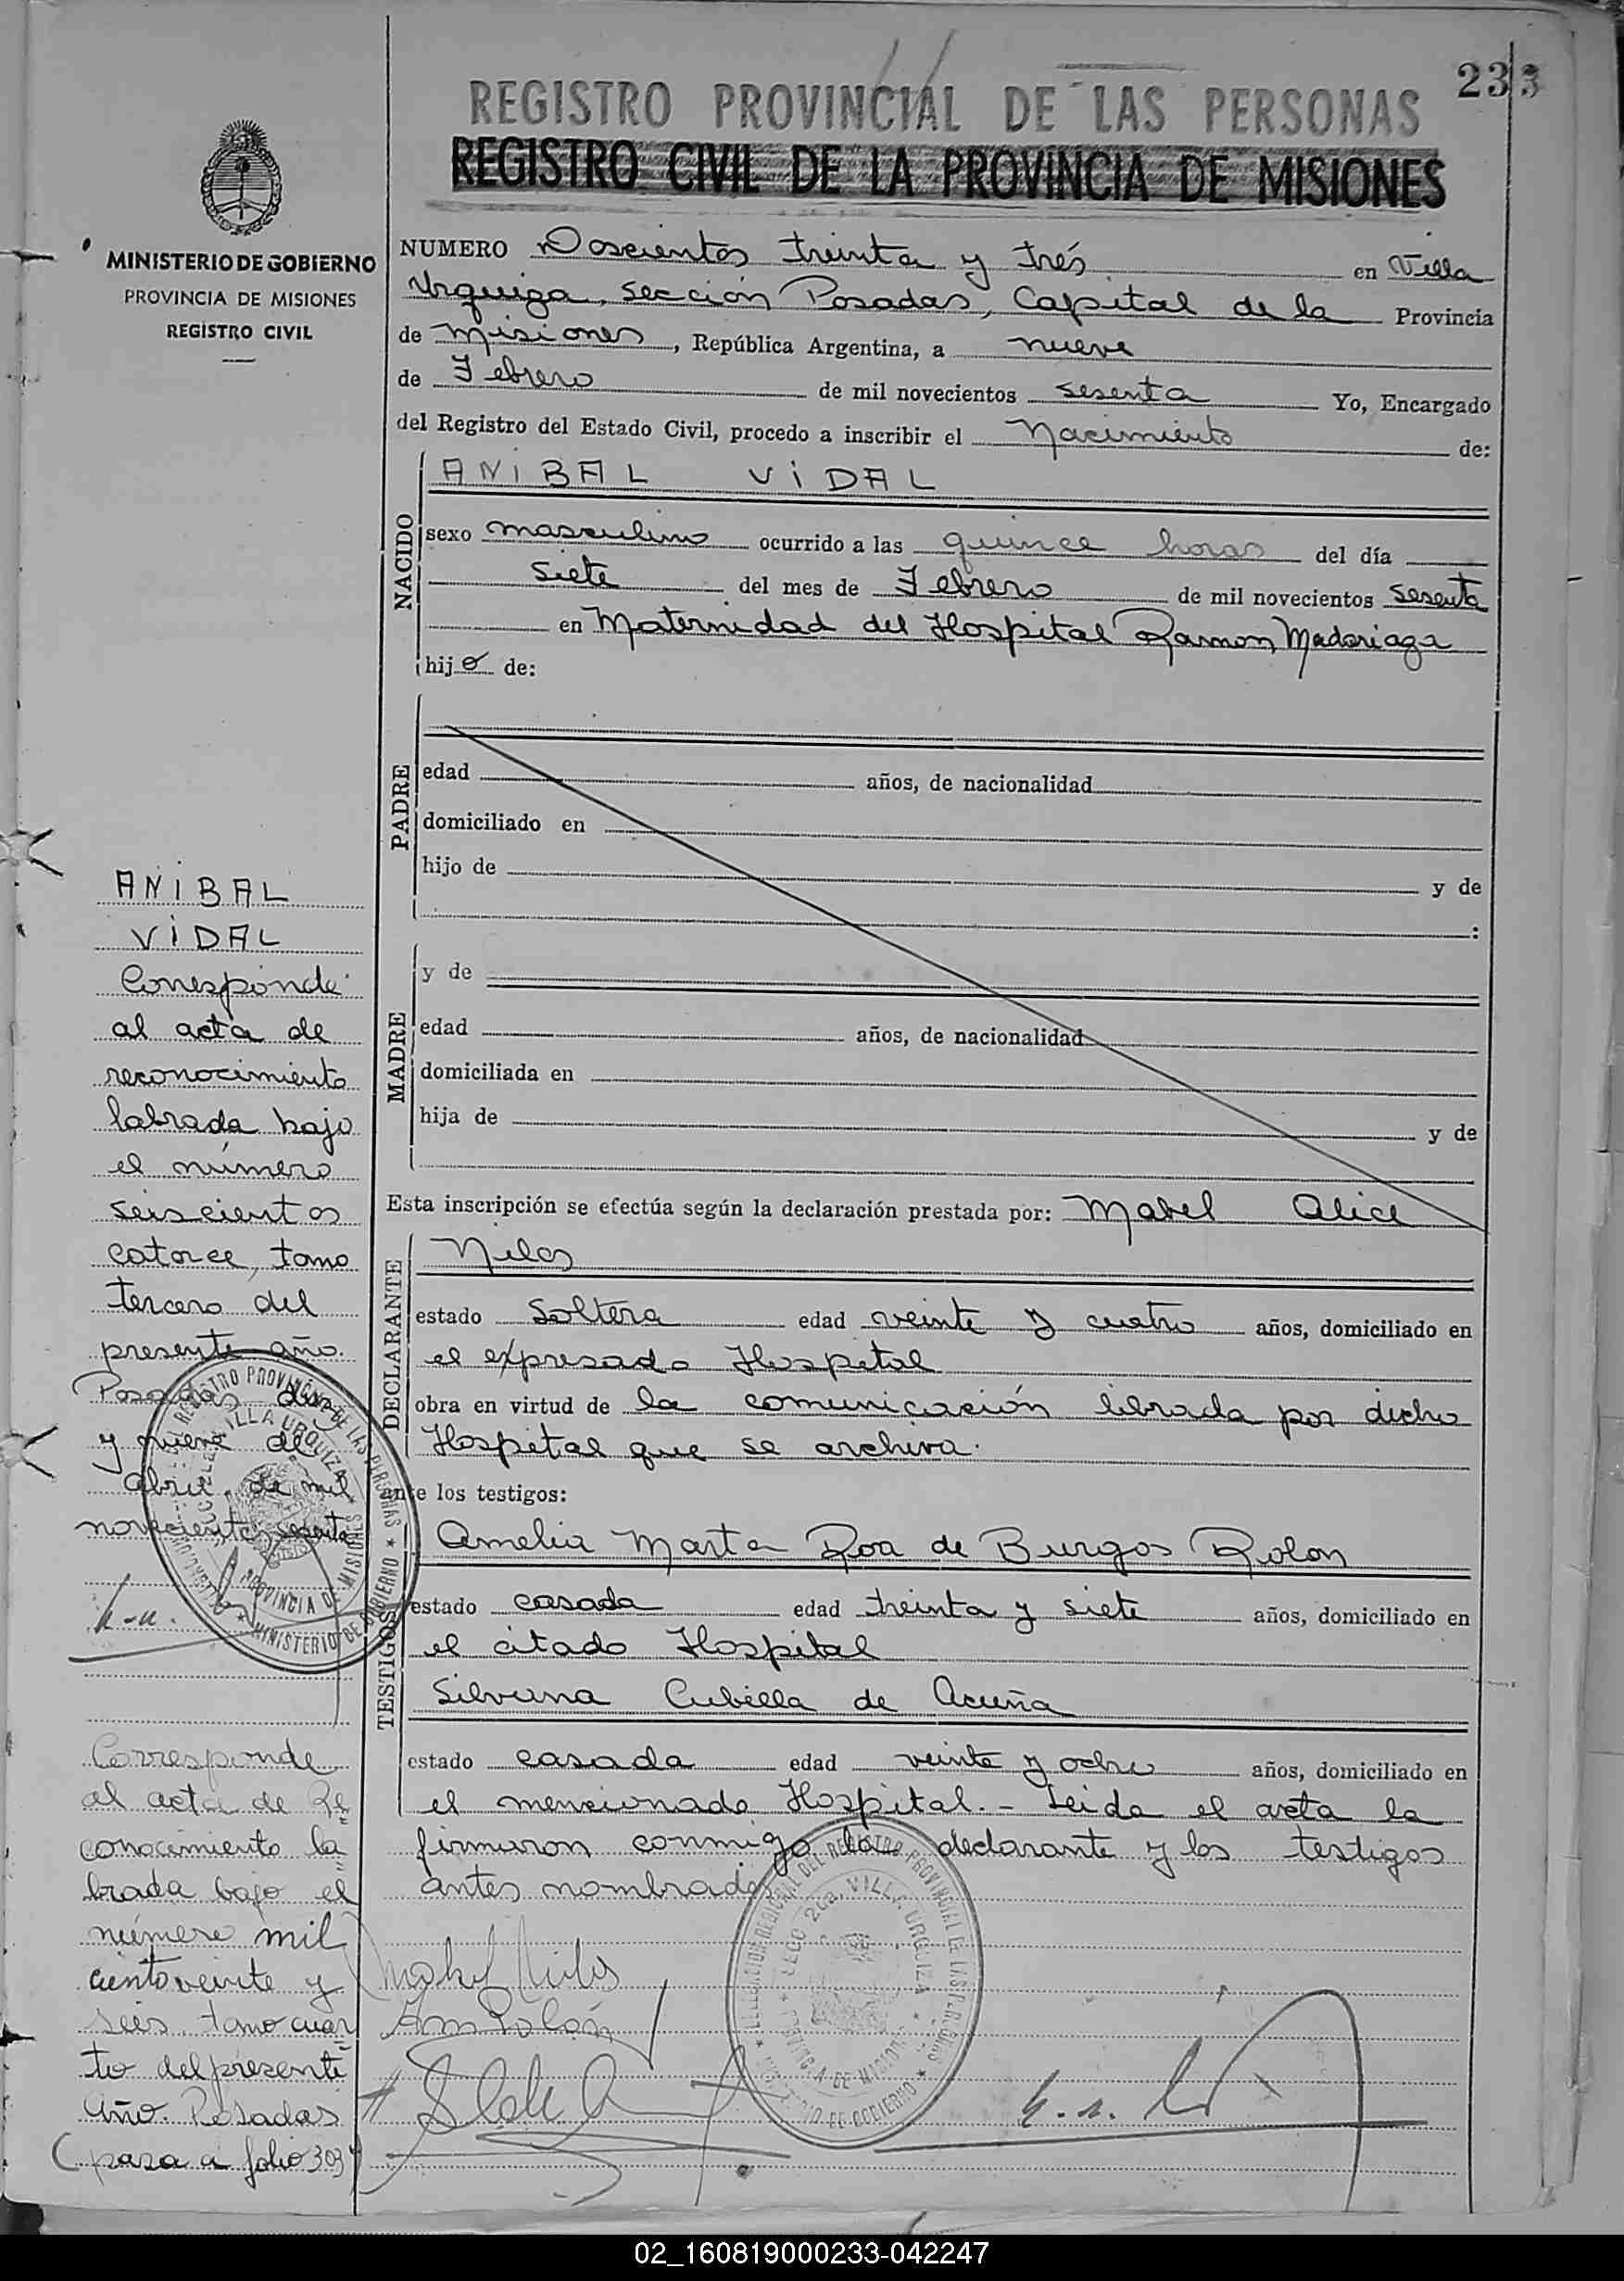 233
REGISTRO PROVINCIAL DE LAS PERSONAS
REGISTRO CIVIL DE LA PROVINCIA DE MISIONES
MINISTERIO DE GOBIERNO
PROVINCIA DE MISIONES
REGISTRO CIVIL
NUMERO Doscientos treinta y trés en Villa
Urquiza, sección Posadas, Capital de la Provincia
de Misiones, República Argentina, a nueve
de Febrero de mil novecientos sesenta Yo, Encargado
del Registro del Estado Civil, procedo a inscribir el Nacimiento de:
NACIDO
ANIBAL VIDAL
sexo masculino ocurrido a las quince horas del día
siete del mes de Febrero de mil novecientos sesenta
en Maternidad del Hospital Ramon Madariaga
hijo de:
PADRE
edad años, de nacionalidad
domiciliado en
hijo de y de
:
MADRE
y de
edad años, de nacionalidad
domiciliada en
hija de y de
Esta inscripción se efectúa según la declaración prestada por: Mabel Alice
DECLARANTE
estado Soltera edad veinte y cuatro años, domiciliado en
el expresado Hospital
obra en virtud de la comunicación librada por dicho
Hospital que se archiva.
ante los testigos:
TESTIGOS
Amelia Marta Roa de Burgos Rolon
estado casada edad treinta y siete años, domiciliado en
el citado Hospital
Silvana Cubilla de Acuña
estado casada edad veinte y ocho años, domiciliado en
el mencionado Hospital.- Leida el acta la
firmaron conmigo la declarante y los testigos
antes nombrados
ANIBAL
VIDAL
Corresponde
al acta de
reconocimiento
labrada bajo
el número
seiscientos
catorce, tomo
tercero del
presente año.
Posadas, diez
y nueve de
Abril de mil
novecientos sesenta
Corresponde
al acta de Re
conocimiento la
brada bajo el
número mil
ciento veinte y
seis tomo cuar
to del presente
Año. Posadas
(pasa a folio 303)
REGISTRO PROVINCIAL DE LAS PERSONAS
VILLA URQUIZA
PROVINCIA DE MISIONES
MINISTERIO DE GOBIERNO
DEL REGISTRO PROVINCIAL DE LAS PERSONAS
SECC 2da. VILLA URQUIZA
PROVINCIA DE MISIONES
MINISTERIO DE GOBIERNO
02_160819000233-042247